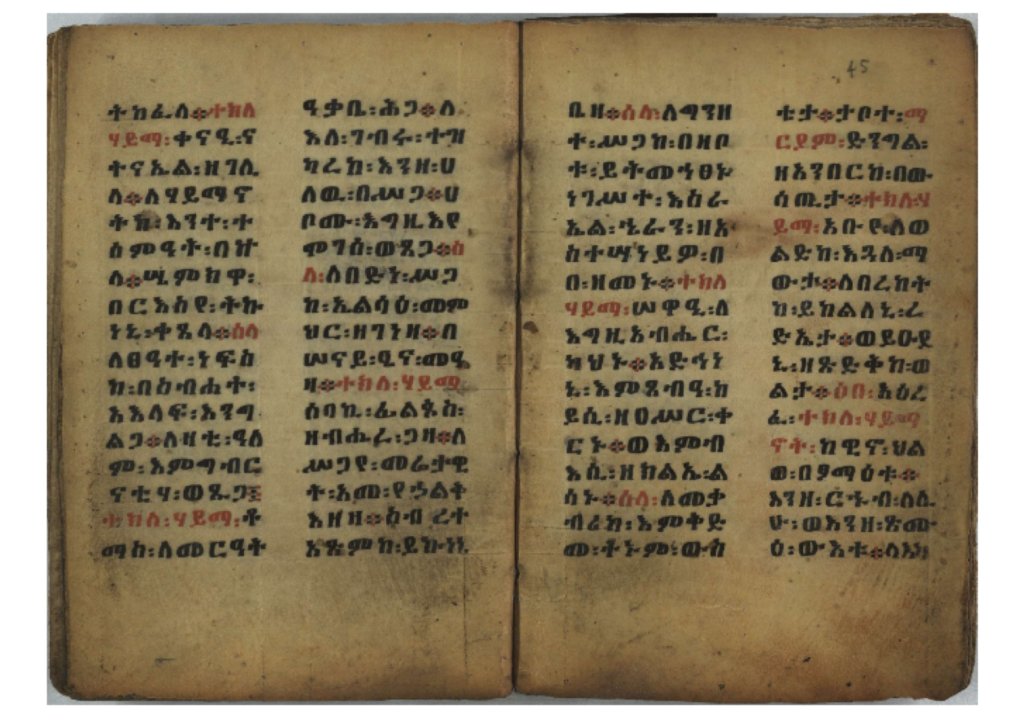 ትከፊለ፨ተክለ
ሃይማ፡ቀናዒ፡ና
ተናኤል፡ዘገሊ
ላ፨ለሃይማኖ
ትከ፡እንተ፡ተ
ሰምዓት፡በዙ
ለ፨ሢምከዋ፡
በርእስየ፡ትኩ
ነኒ፡ቀጸላ፨ሰላ
ለፀዓተ፡ነፍስ
ከ፡በስብሐት፡
አእላፍ፡እንግ
ልጋ፨ለዛቲ፡ዓለ
ም፡እምግብር
ናቲሃ፡ወጼጋ፤
ተክለ፡ሃይማ፡ቶ
ማስ፡ለመርዓት
ዓቃቤ፡ሕጋ፨ለ
እለ፡ገብሩ፡ተዝ
ካረከ፡እንዘ፡ሀ
ለዉ፡በሥጋ፨ሀ
ቦሙ፡እግዚእየ
ሞገሰ፡ወጸጋ፨ሰ
ላ፡ለበድነ፡ሥጋ
ከ፡ኤልሳዕ፡መም
ህር፡ዘገነዘ፨በ
ሠናይ፡ዒና፡መዔ
ዛ፨ተክለ፡ሃይማ
ሰባኪ፡ፊልጶስ፡
ዘብሔረ፡ጋዛ፨ለ
ሥጋየ፡መሬታዊ
ት፡አመ፡የኃልቅ
እዘዘ፨ስብረተ
አጽምከ፡ይኩነኒ
ቤዛ፨ሰላ፡ለማኅዘ
ተ፡ሥጋከ፡በዘቦ
ቱ፡ይትመኀፀኑ
ነገሥተ፡እስራ
ኤል፡ኄራን፡ዘአ
ስተሣነይዎ፡በ
በ፡ዘመኑ፨ተክለ
ሃይማ፡ሠዋዒ፡ለ
እግዚአብሔር፡
ካህኑ፨አድኅነ
ኒ፡እምጸብዓ፡ከ
ይሲ፡ዘዐሥር፡ቀ
ርኑ፨ወእምብ
እሲ፡ዘክልኤ፡ል
ሳኑ፨ሰላ፡ለመቃ
ብሪከ፡እምቅድ
መ፡ቶኑም፡ውስ
ቴታ፨ታቦተ፡ማ
ርያም፡ድንግል፡
ዘአንበርከ፡በው
ሳጢታ፨ተክለ፡ሃ
ይማ፡አቡየ፡ለወ
ልድከ፡እጓለ፡ማ
ውታ፨ለበረከት
ከ፡ይክልለኒ፡ረ
ድኤታ፨ወይዑደ
ኒ፡ዘጽድቅከ፡ወ
ልታ፨ዕበ፡አዕረ
ፈ፡ተክለ፡ሃይማ
ኖት፡ከዊኖ፡ህል
ወ፡በፃማዕቱ፨
እንዘ፡ርኁብ፡ለሊ
ሁ፡ወእንዘ፡ጽሙ
ዕ፡ውእቱ፨ላእከ
45